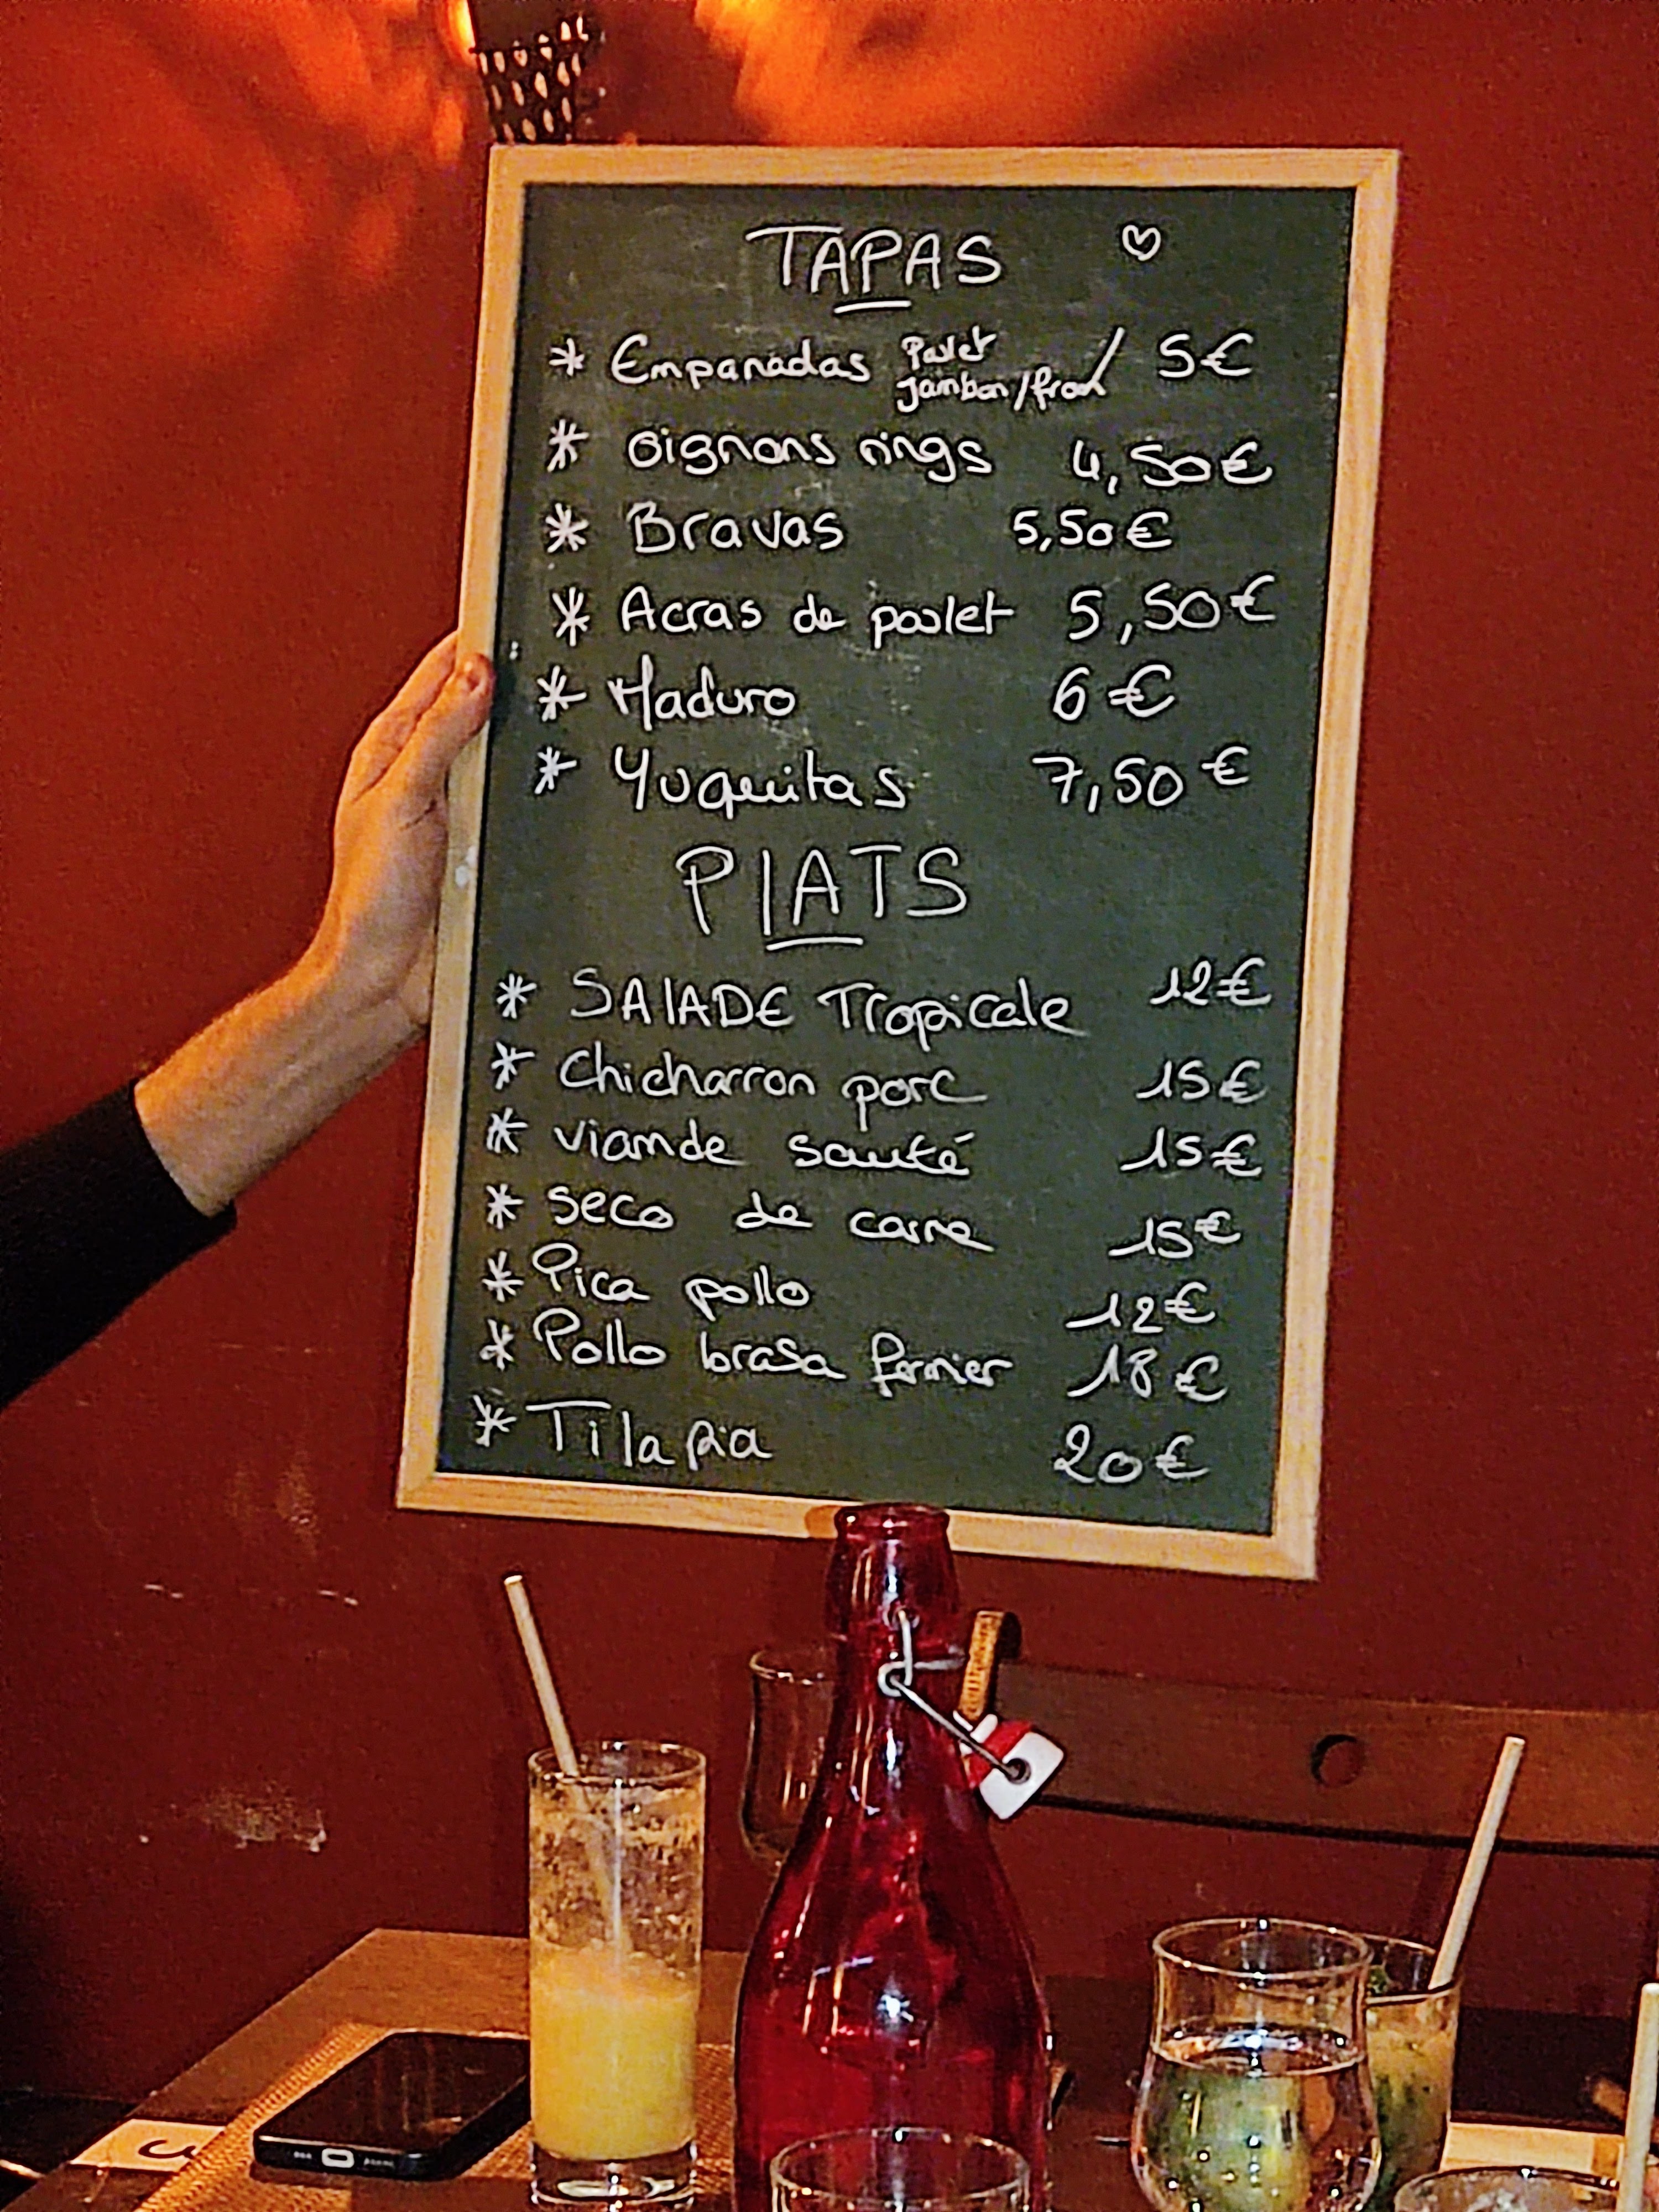 TAPAS ♡
* Empanadas Poulet jambon/from / 5€
* oignons rings 4,50€
* Bravas 5,50€
* Acras de poulet 5,50€
* Maduro 6€
* Yuquitas 7,50€
PlATS
* SAlADE Tropicale 12€
* Chicharron porc 15€
* viande sauté 15€
* seco de carne 15€
* Pica pollo 12€
* Pollo brasa fermier 18€
* Tilapia 20€